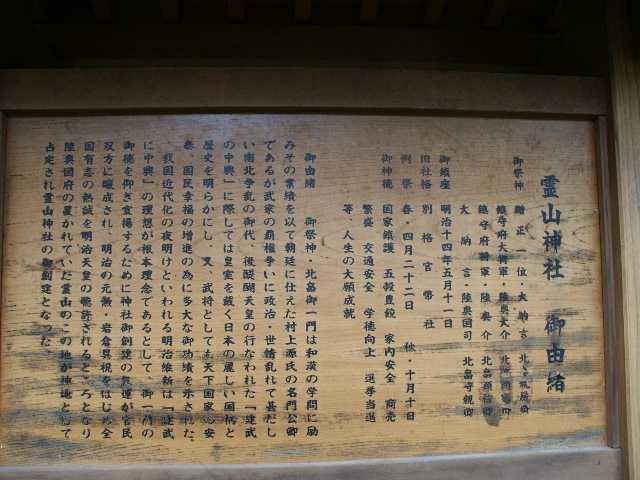 霊山神社 御由緒
御祭神 贈正一位・大納言 北畠親房卿
鎮守府大将軍・陸奥大介 北畠顕家卿
鎮守府将軍・陸奥介 北畠顕信卿
大納言・陸奥国司 北畠守親卿
御鎮座 明治十四年五月十一日
旧社格 別格官幣社
例祭 春・四月二十二日 秋・十月十日
御神徳 国家鎮護 五穀豊饒 家内安全 商売
繁盛 交通安全 学徳向上 選挙当選
等、人生の大願成就
御由緒 御祭神・北畠御一門は和漢の学問に励
みその業績を以て朝廷に仕えた村上源氏の名門公卿
であるが武家の覇権争いに政治・世情乱れて甚だし
い南北争乱の御代、後醍醐天皇の行なわれた「建武
の中興」に際しては皇室を戴く日本の麗しい国柄と
歴史を明らかにし、又、武将としても天下国家の安
泰、国民幸福の増進の為に多大な御功績を示された。
我国近代化の夜明けといわれる明治維新は「建武
に中興」の理想が根本理念であるとして、御一門の
御徳を仰ぎ宣揚するために神社御創建の気運が官民
双方に醸成され、明治の元勲・岩倉具視をはじめ全
国有志の熱誠を明治天皇の聴許されるところとなり
陸奥国府の置かれていた霊山のこの地が神地として
占定され霊山神社の御創建となった。